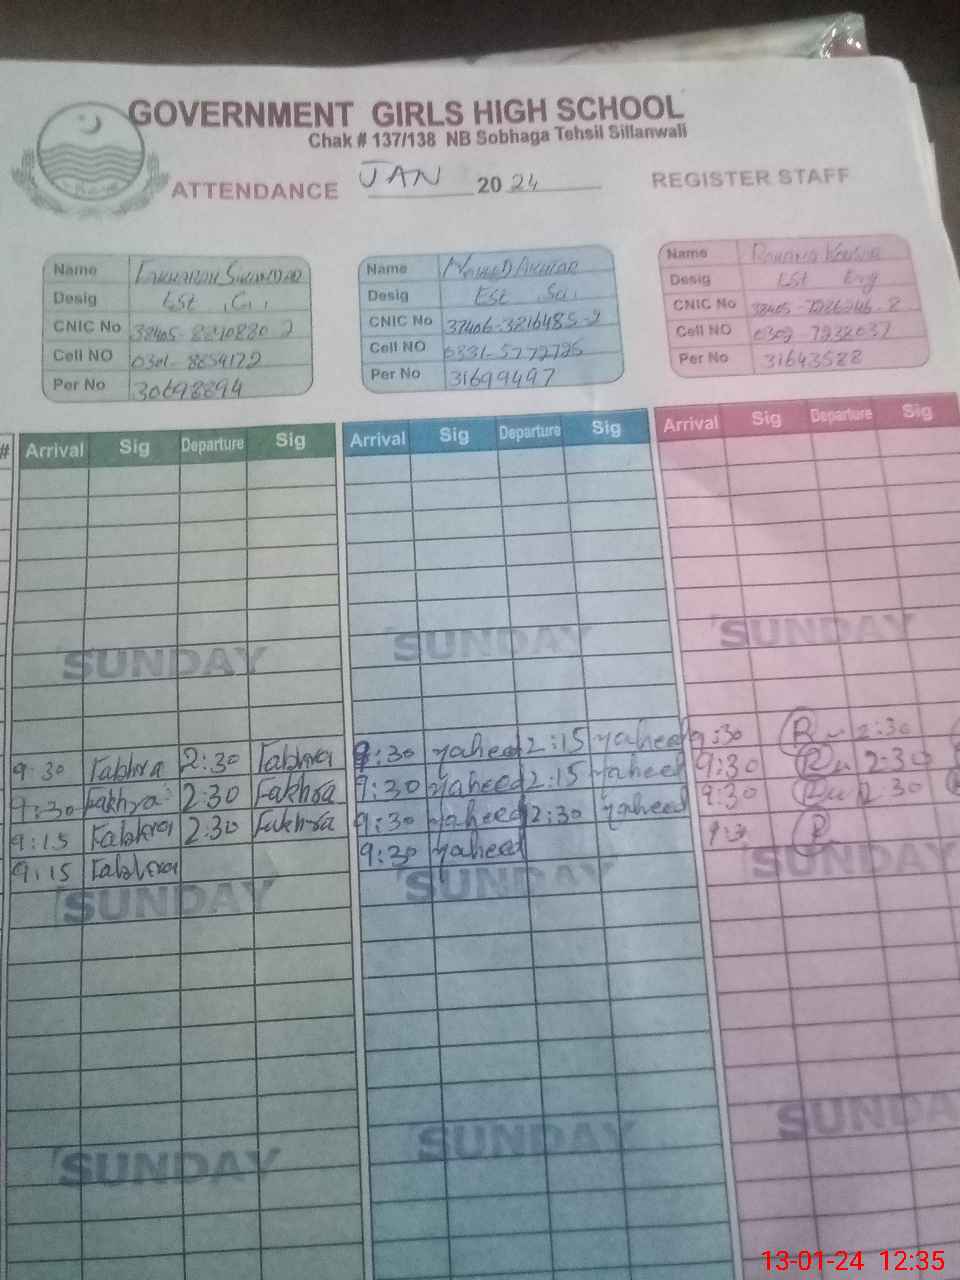 GOVERNMENT GIRLS HIGH SCHOOL
Chak # 137/138 NB Sobhaga Tehsil Sillanwali
ATTENDANCE JAN 2024 REGISTER STAFF
Name Name NAHEED AKHTAR Name
Desig Est Desig Est Sci, Desig Est Eng
CNIC No CNIC No 37406-3216485-2 CNIC No
Cell NO Cell NO 0331-5772725 Cell NO
Per No 30698894 Per No 31699497 Per No 31643528
# Arrival Sig Departure Sig Arrival Sig Departure Sig Arrival Sig Departure Sig
SUNDAY SUNDAY SUNDAY
9:30 Fakhra 2:30 Fakhra 9:30 Naheed 2:15 Naheed 9:30 2:30
9:30 Fakhra 2:30 Fakhra 9:30 Naheed 2:15 Naheed 9:30 2:30
9:15 Fakhra 2:30 Fakhra 9:30 Naheed 2:30 Naheed 9:30 2:30
9:15 Fakhra 9:30 Naheed
SUNDAY SUNDAY SUNDAY
SUNDAY SUNDAY SUNDA
13-01-24 12:35